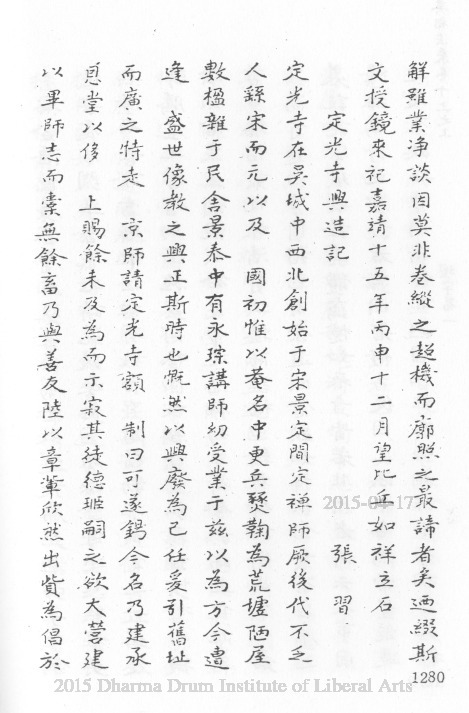 解雖業净談因莫非卷縱之超機而廓照之最諦者矣迺綴斯
文授鏡來祀嘉靖十五年丙申十二月望比丘如祥立石
定光寺興造記
張習
定光寺在吴城中西北創始于宋景定間定禅師厥後代不乏
人繇宋而元以及 國初惟以菴名中更兵燹鞠為荒墟陋屋
數楹雜于民舍景泰中有永瑺講師幼受業于兹以為方今遭
逢 盛世像教之興正斯時也慨然以興廢為己任爰引舊址
而廣之特走 京師請定光寺額 制曰可遂錫今名乃建承
恩堂以侈 上賜餘未及為而示寂其徒德姬嗣之欲大營建
以畢師志而橐無餘畜乃與善友陸以章輩欣然出貲為倡於
1280
2015-04-17
2015 Dharma Drum Institute of Liberal Arts